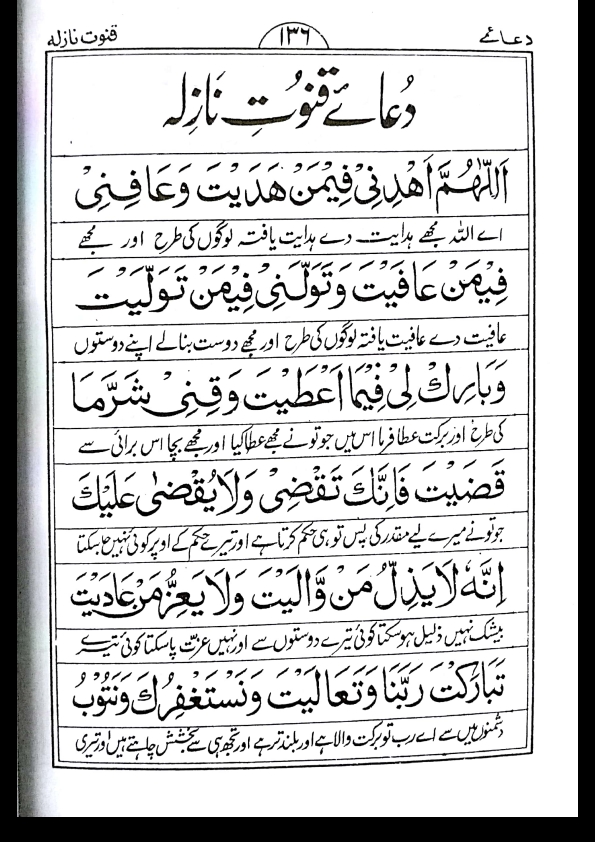 دعائے ۱۳۶ قنوت نازلہ
دُعائے قنوُتِ نَازِلہ
اَللّٰهُمَّ اهْدِنِیْ فِیْمَنْ هَدَیْتَ وَعَافِنِیْ
اے اللہ مجھے ہدایت دے ہدایت یافتہ لوگوں کی طرح اور مجھے
فِیْمَنْ عَافَیْتَ وَتَوَلَّنِیْ فِیْمَنْ تَوَلَّیْتَ
عافیت دے عافیت یافتہ لوگوں کی طرح اور مجھے دوست بنالے اپنے دوستوں
وَبَارِكْ لِیْ فِیْمَا اَعْطَیْتَ وَقِنِیْ شَرَّمَا
کی طرح اور برکت عطا فرما اس میں جو تو نے مجھے عطا کیا اور مجھے بچا اس برائی سے
قَضَیْتَ فَاِنَّكَ تَقْضِیْ وَلَا یُقْضٰی عَلَیْكَ
جو تو نے میرے لیے مقدر کی پس تو ہی حکم کرتا ہے اور تیرے حکم کے اوپر کوئی نہیں جاسکتا
اِنَّهٗ لَا یَذِلُّ مَنْ وَّالَیْتَ وَلَا یَعِزُّ مَنْ عَادَیْتَ
بیشک نہیں ذلیل ہوسکتا کوئی تیرے دوستوں سے اور نہیں عزت پاسکتا کوئی تیرے
تَبَارَكْتَ رَبَّنَا وَتَعَالَیْتَ وَنَسْتَغْفِرُكَ وَنَتُوْبُ
دشمنوں میں سے اے رب تو برکت والا ہے اور بلند تر ہے اور تجھ ہی سے بخشش چاہتے ہیں اور تیری